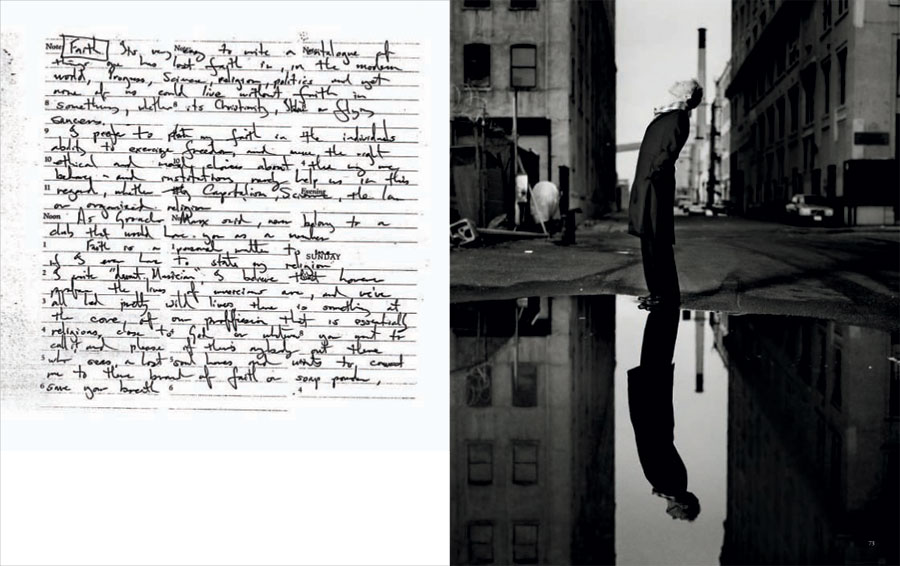 Faith Its very easy to write a catalogue of
things one has lost faith in in the modern
world, Progress, Science, religion, politics and yet
none of us could live without faith in
8 something, whether its Christianity, or flying
saucers.
9 I prefer to my faith in the individuals
ability to exercise freedom and make the right
10 ethical and moral choices about the way we
behave - and institutions rarely help us in this
11 regard, whether its Capitalism, Science, the law
or organized religion
Noon As Groucho Marx said, never belong to a
club that would have you as a member
1 Faith is a personal matter to SUNDAY
if I ever have to state my religion
2 I write "devout Musician", I believe that however
profane the lives of musicians are, and we've
3 all led pretty wild lives there is something at
the core of our proffession that is essentially
4 religious, close to God or you want to
call it and please if theirs anybody out there
5 who sees a lost soul here and wants to convert
me to their brand of faith or soap powder,
6 save your breath
73